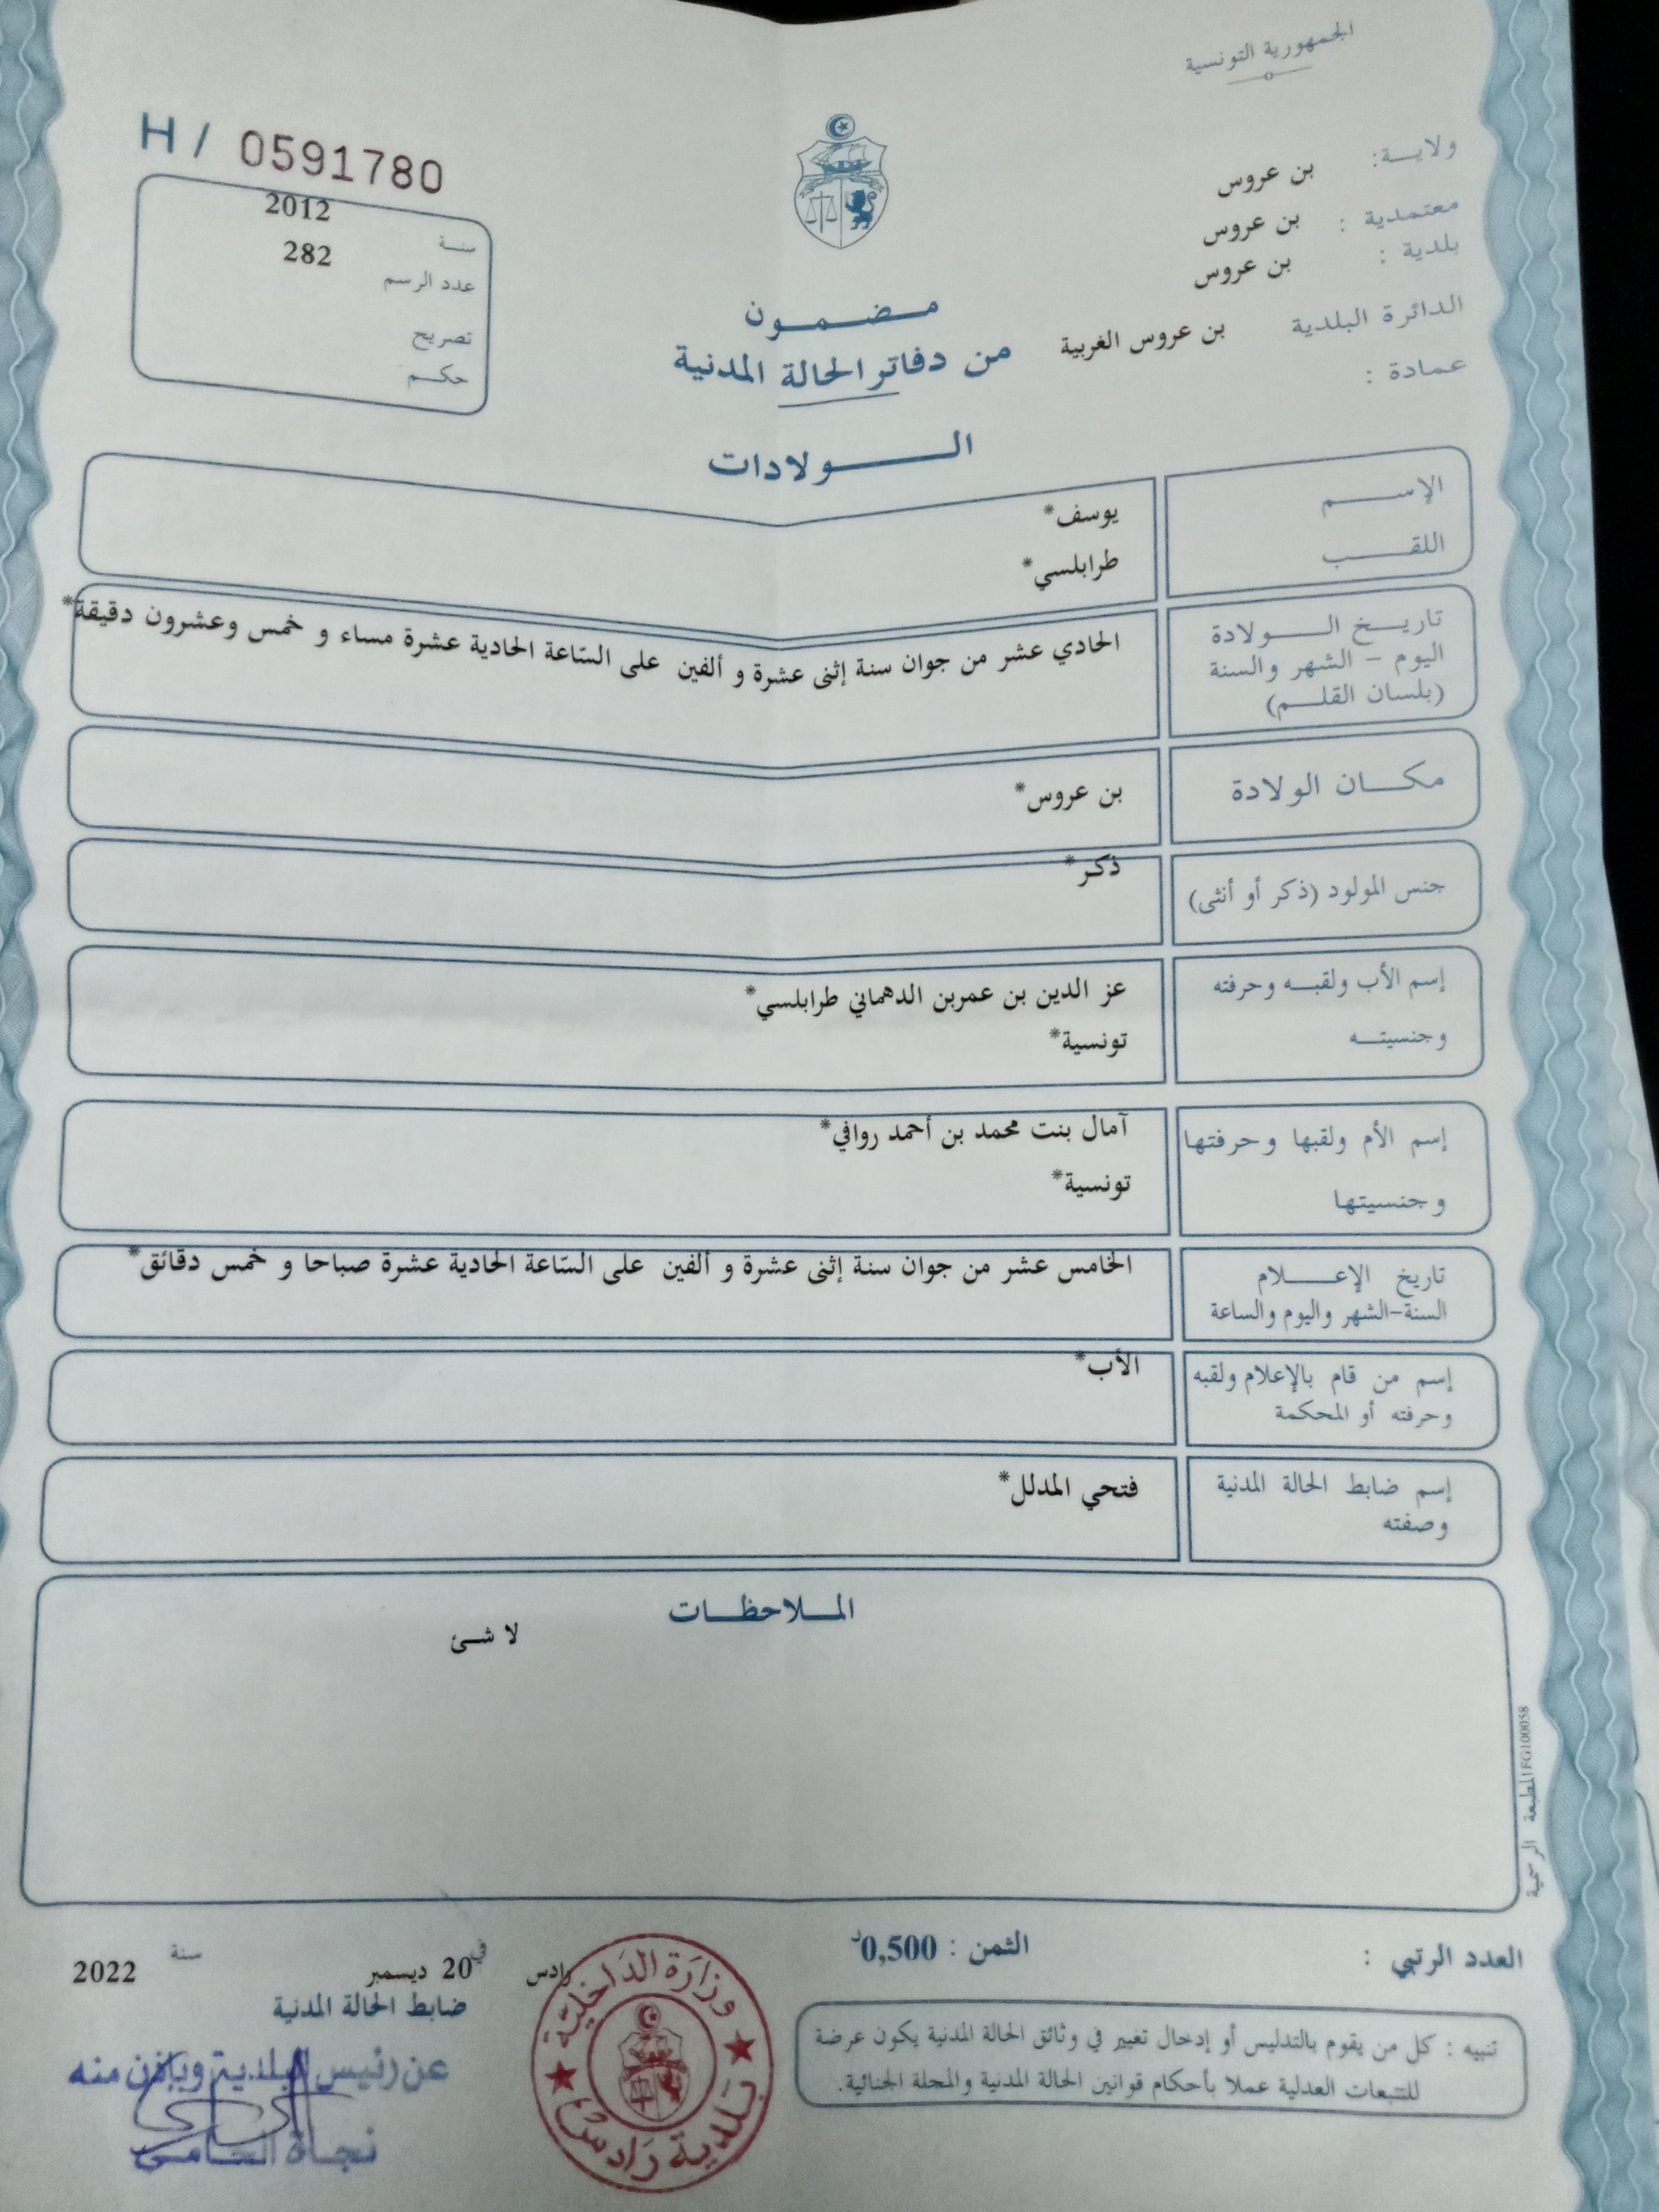 الجمهورية التونسية
H / 0591780
ولاية: بن عروس
معتمدية : بن عروس
بلدية : بن عروس
الدائرة البلدية بن عروس الغربية
عمادة :
سنة 2012
عدد الرسم 282
تصريح
حكم
مضمون
من دفاتر الحالة المدنية
الولادات
الإسم يوسف*
اللقب طرابلسي*
تاريخ الولادة
اليوم - الشهر والسنة
(بلسان القلم)
الحادي عشر من جوان سنة إثنى عشرة و ألفين على السّاعة الحادية عشرة مساء و خمس وعشرون دقيقة*
مكان الولادة بن عروس*
جنس المولود (ذكر أو أنثى) ذكر*
إسم الأب ولقبه وحرفته عز الدين بن عمربن الدهماني طرابلسي*
وجنسيته تونسية*
إسم الأم ولقبها وحرفتها آمال بنت محمد بن أحمد روافي*
وجنسيتها تونسية*
تاريخ الإعلام
السنة-الشهر واليوم والساعة
الخامس عشر من جوان سنة إثنى عشرة و ألفين على السّاعة الحادية عشرة صباحا و خمس دقائق*
إسم من قام بالإعلام ولقبه
وحرفته أو المحكمة
الأب*
إسم ضابط الحالة المدنية
وصفته
فتحي المدلل*
الملاحظات
لا شئ
المطبعة الرسمية FG100058
العدد الرتبي :
الثمن : 0,500د
تنبيه : كل من يقوم بالتدليس أو إدخال تغيير في وثائق الحالة المدنية يكون عرضة
للتتبعات العدلية عملا بأحكام قوانين الحالة المدنية والمجلة الجنائية.
رادس في 20 ديسمبر سنة 2022
ضابط الحالة المدنية
وزارة الداخليّة
بلدية رادس
عن رئيس البلدية وبإذن منه
نجاة